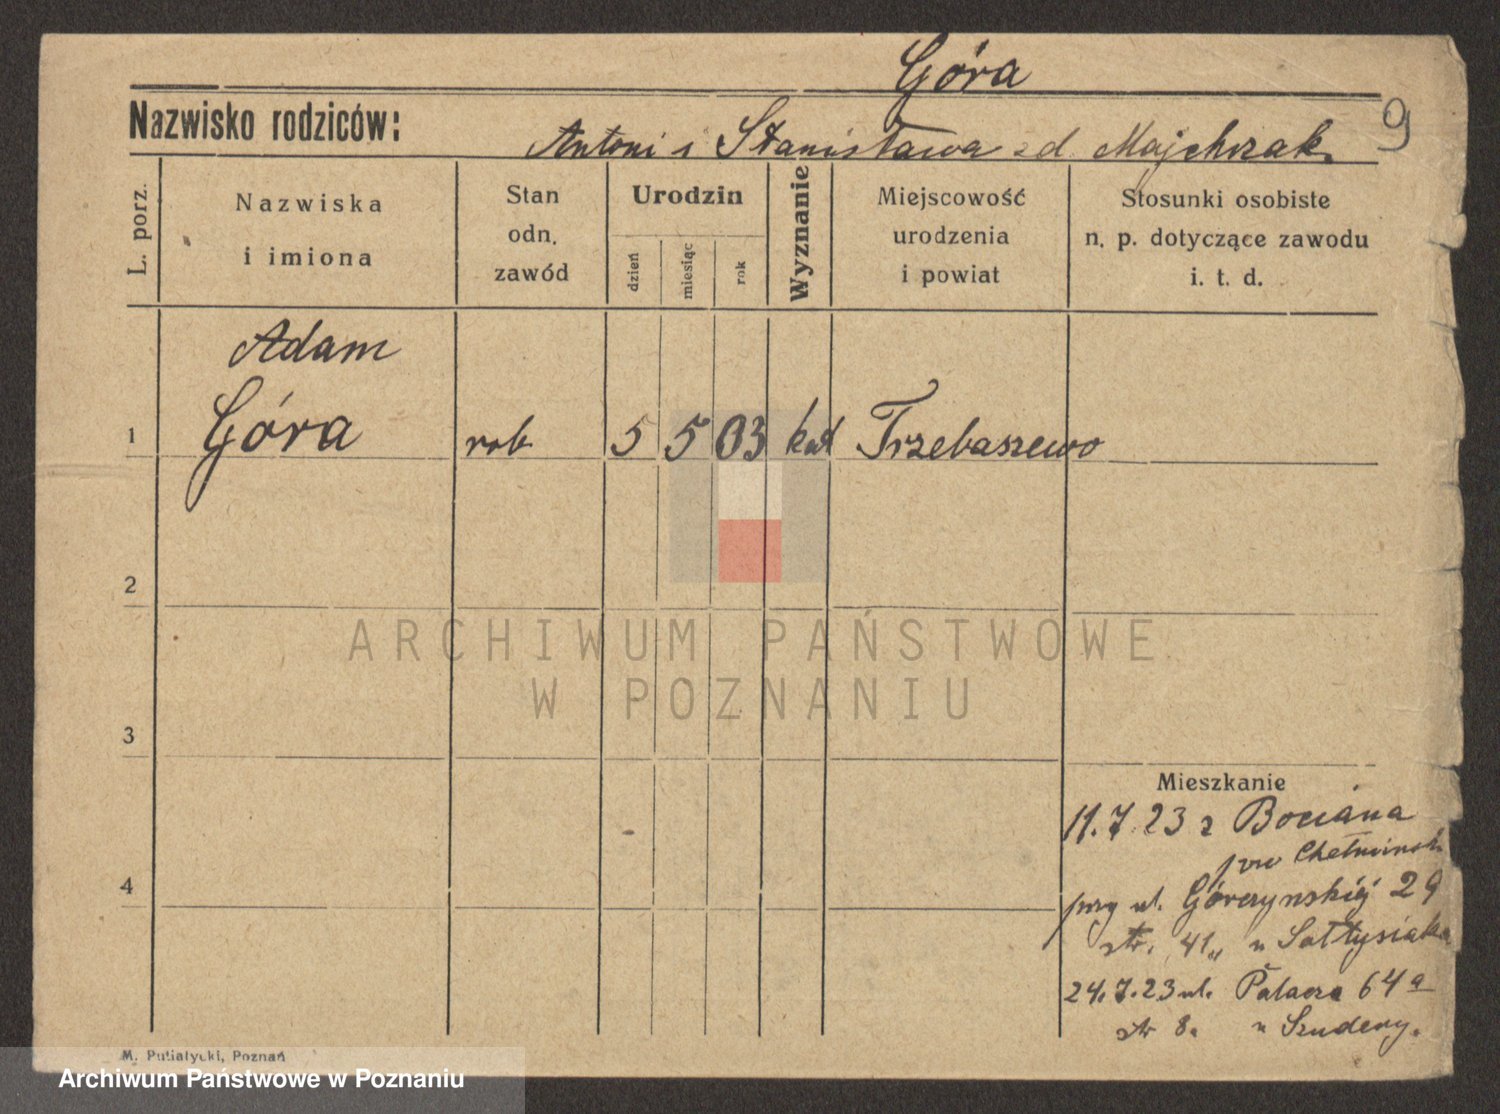 Góra
Nazwisko rodziców:
Antoni i Stanisława zd. Majchrzak
9
L. porz.
Nazwiska
i imiona
Stan
odn.
zawód
Urodzin
dzień
miesiąc
rok
Wyznanie
Miejscowość
urodzenia
i powiat
Stosunki osobiste
n. p. dotyczące zawodu
i. t. d.
Adam
1 Góra rob 5 5 03 kat Trzebaszewo
2
ARCHIWUM PAŃSTWOWE
W POZNANIU
3
Mieszkanie
11.7.23 z Bociana
pow Chełmińsk
4
przy ul. Górczyńskiej 29
str. 41 u Sołtysiaka
24.7.23 ul. Palacza 64a
str 8. u
M. Putiatycki, Poznań
Archiwum Państwowe w Poznaniu